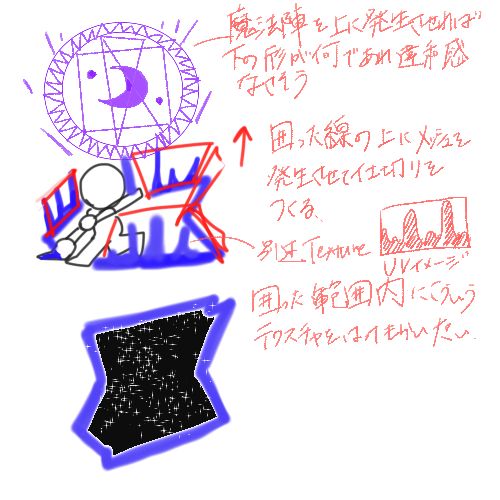 魔法陣を上に発生させれば
下の形が何であれ違和感
なさそう
囲った線の上にメッシュを
発生させて仕切りを
つくる。
別途Texture
UVイメージ
囲った範囲内にこういう
テクスチャを